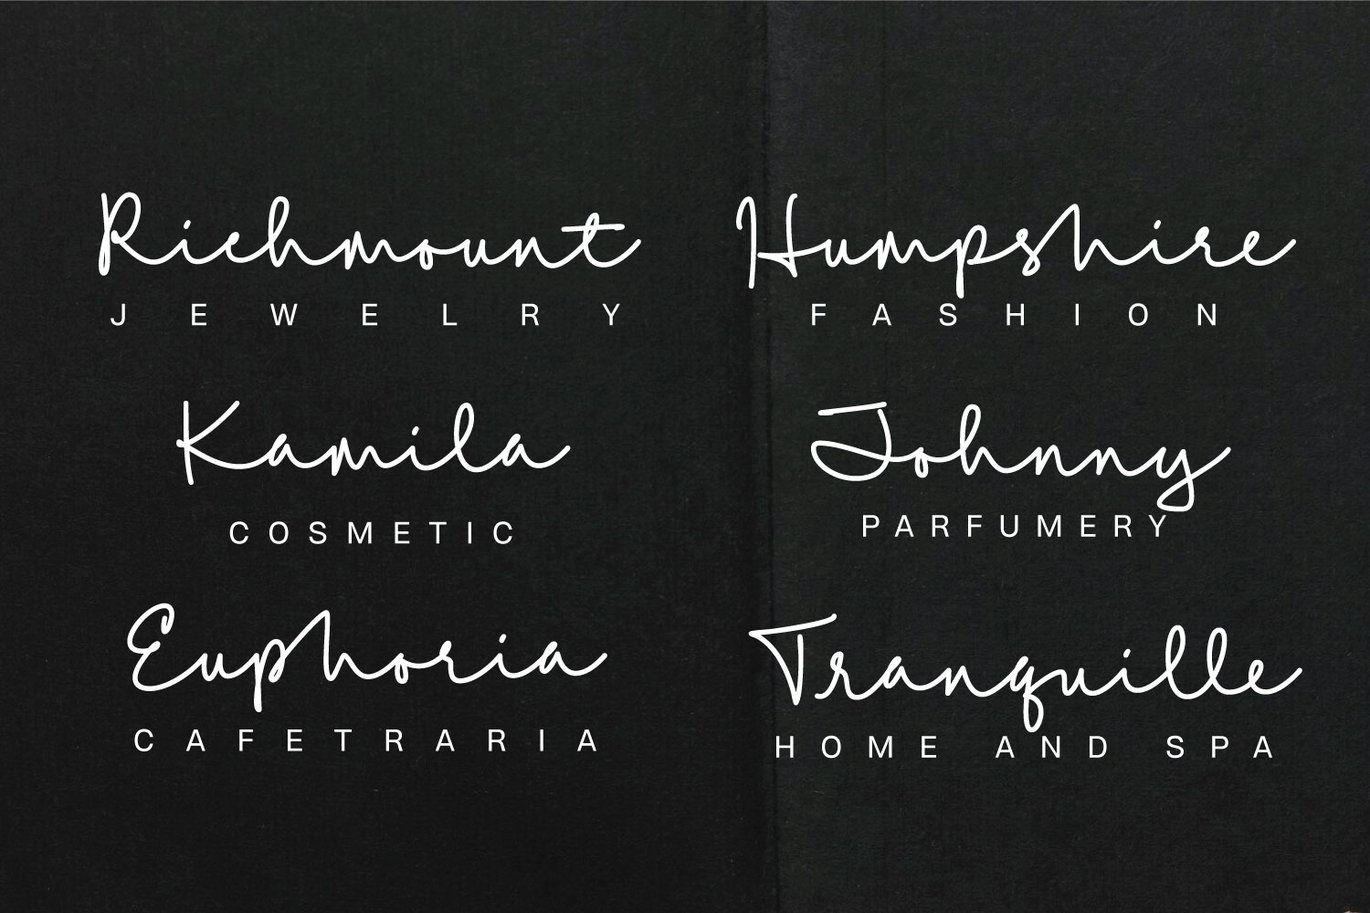 Richmount
JEWELRY
Humpshire
FASHION
Kamila
COSMETIC
Johnny
PARFUMERY
Euphoria
CAFETRARIA
Tranquille
HOME AND SPA